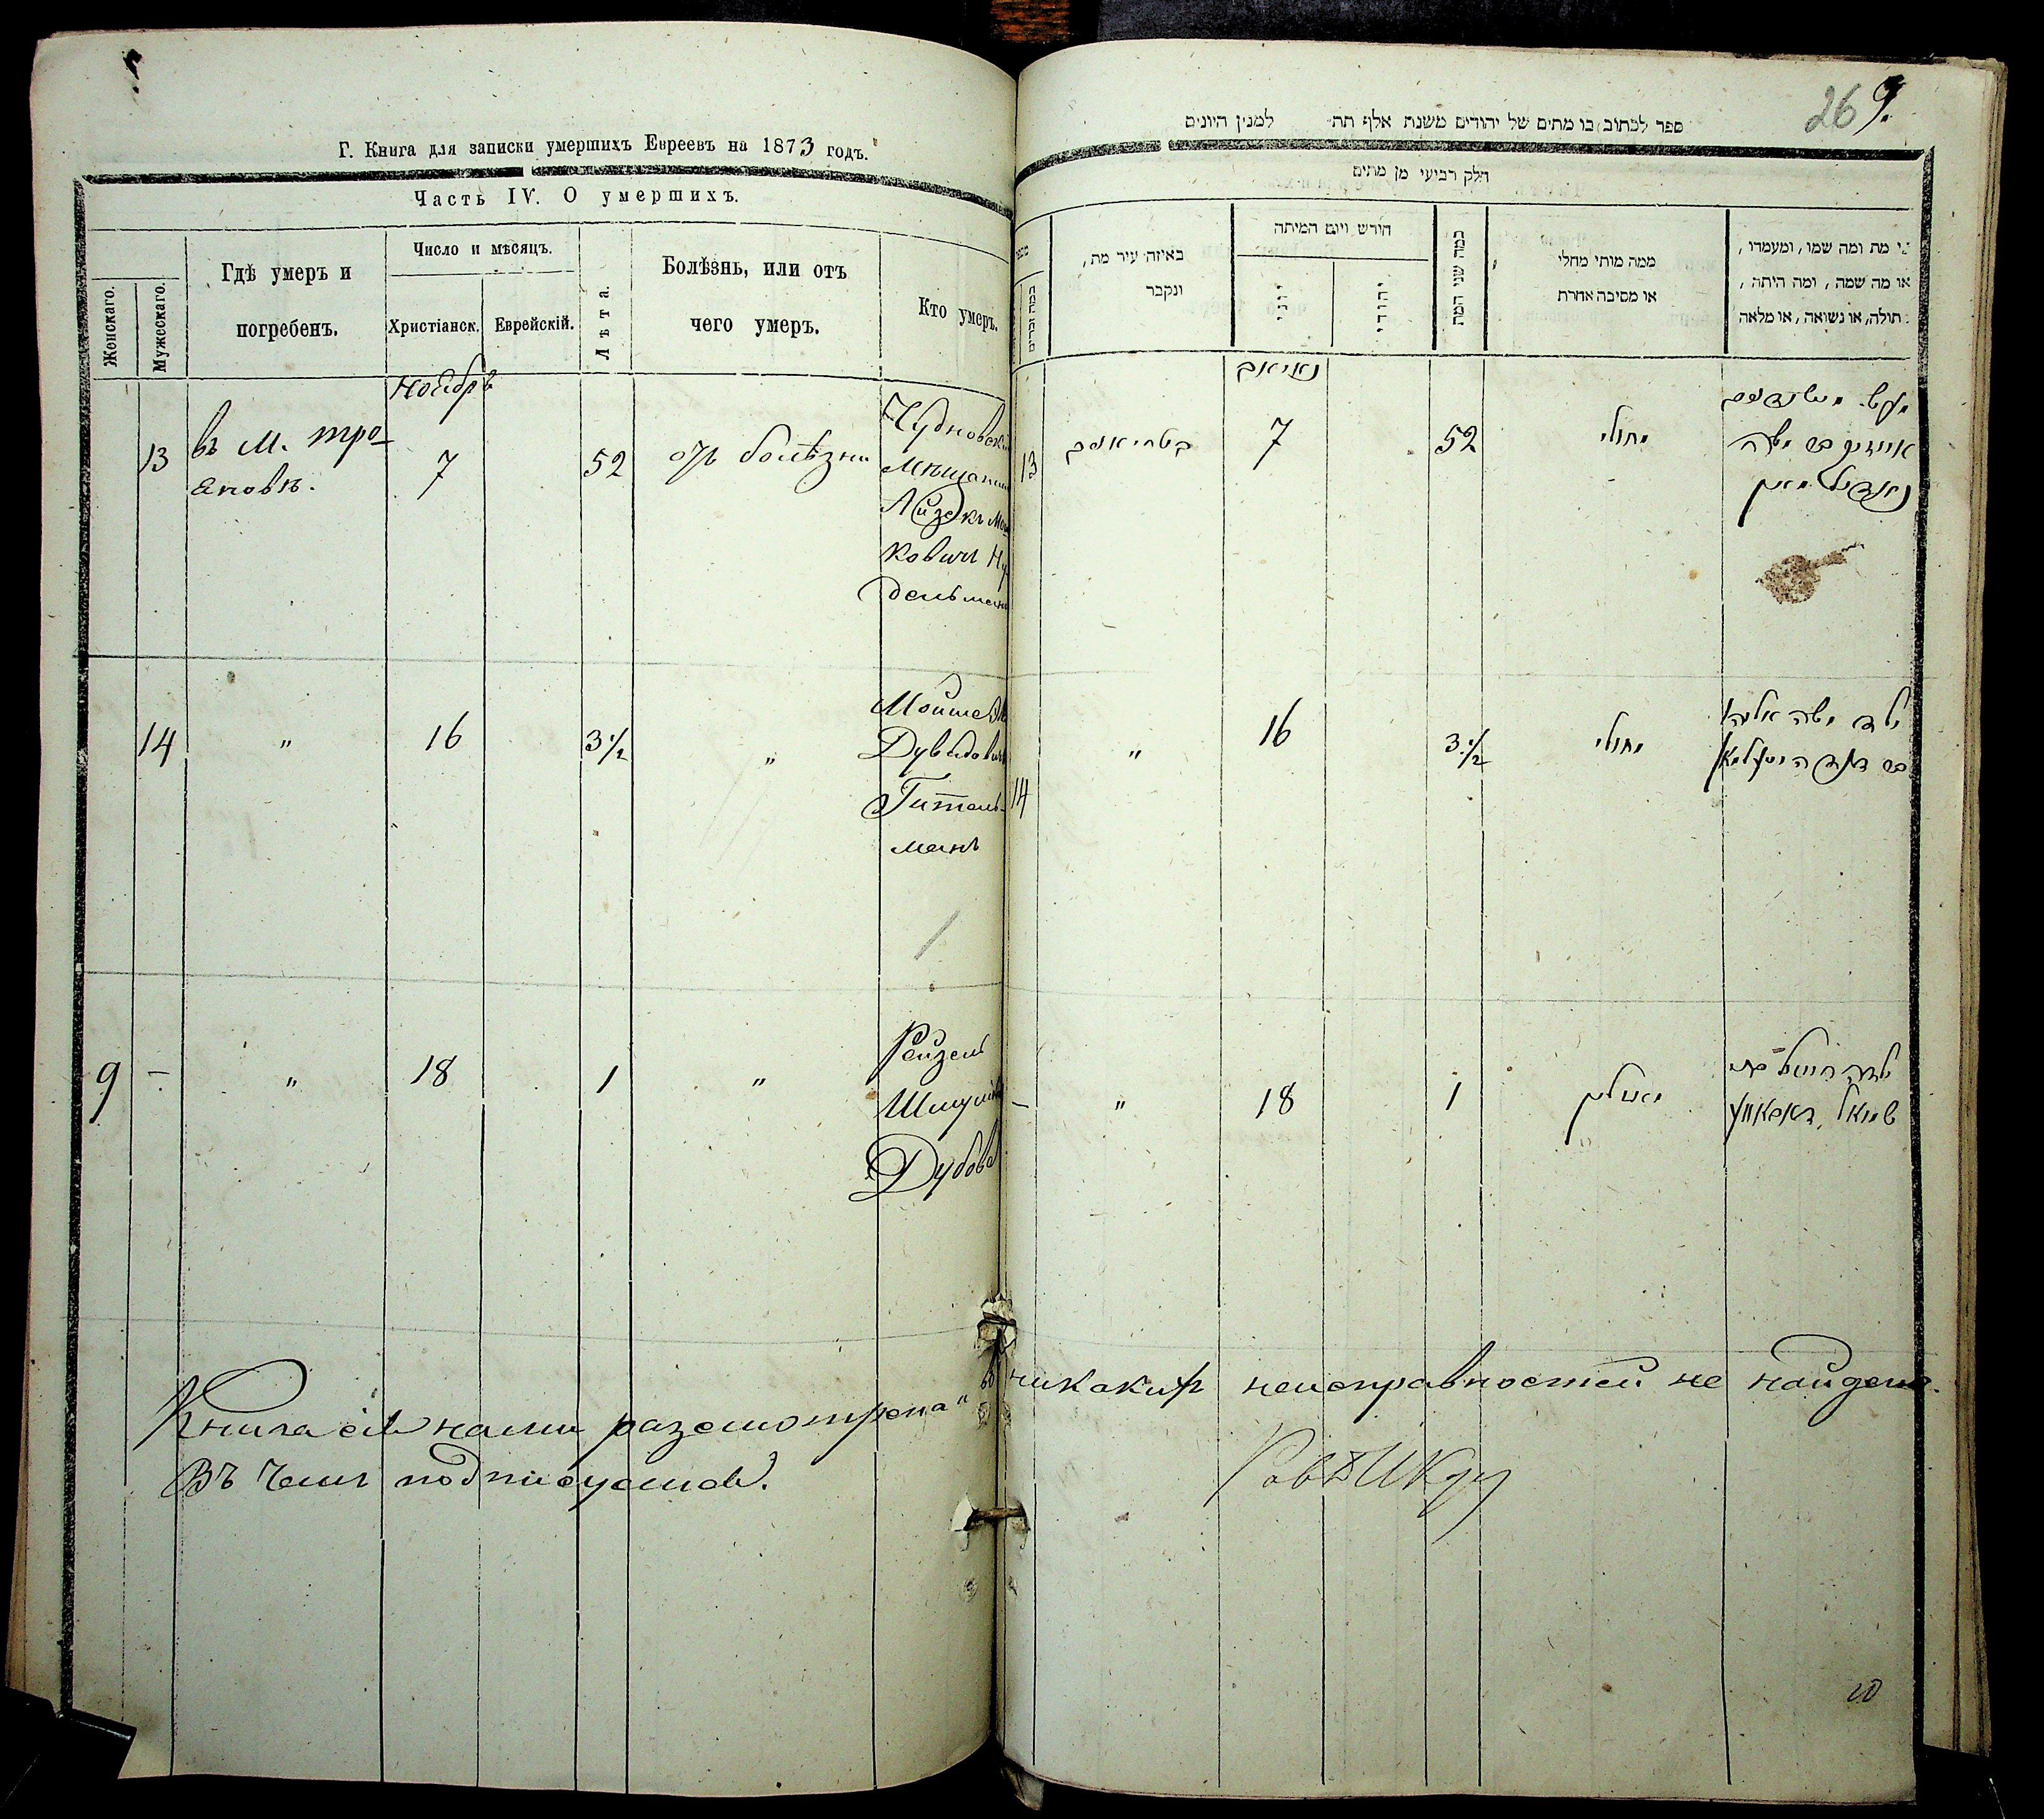 Г. Книга для записки умершихъ Евреевъ на 1873 годъ.
Часть IV. О умершихъ.
Женскаго.
Мужескаго.
Гдѣ умеръ и
погребенъ.
Число и мѣсяцъ.
Христіанск.
Еврейскій.
Лѣта.
Болѣзнь, или отъ
чего умеръ.
Кто умеръ.
Ноябрь
13
въ м. Тро-
яновѣ.
7
52
отъ болѣзни
Чудновскій
Мѣщанинъ
ковичъ
дельманъ
14
"
16
3 1/2
"
Мойше
Дувидовичъ
Гитель-
манъ
9
-
"
18
1
"
Рейзель
Дубова
Книга сія нами разсмотрена и
Въ чемъ подписуемся.
269.
ספר לכתוב בו מתים של יהודים משנת אלף תת למנין היונים
חלק רביעי מן מתים
באיזה עיר מת,
ונקבר
חודש ויום המיתה
יוני
יהודי
כמה שני המת
ממה מותי מחלי
או מסיבה אחרת
מי מת ומה שמו, ומעמדו,
או מה שמה, ומה היתה,
בתולה, או נשואה, או מלאה
13
7
52
יחולי
14
"
16
3 1/2
יחולי
ילד משה אליהו
-
"
18
1
ילדה רייזיל בת
שמואל
никакихъ неисправностей не найдено.